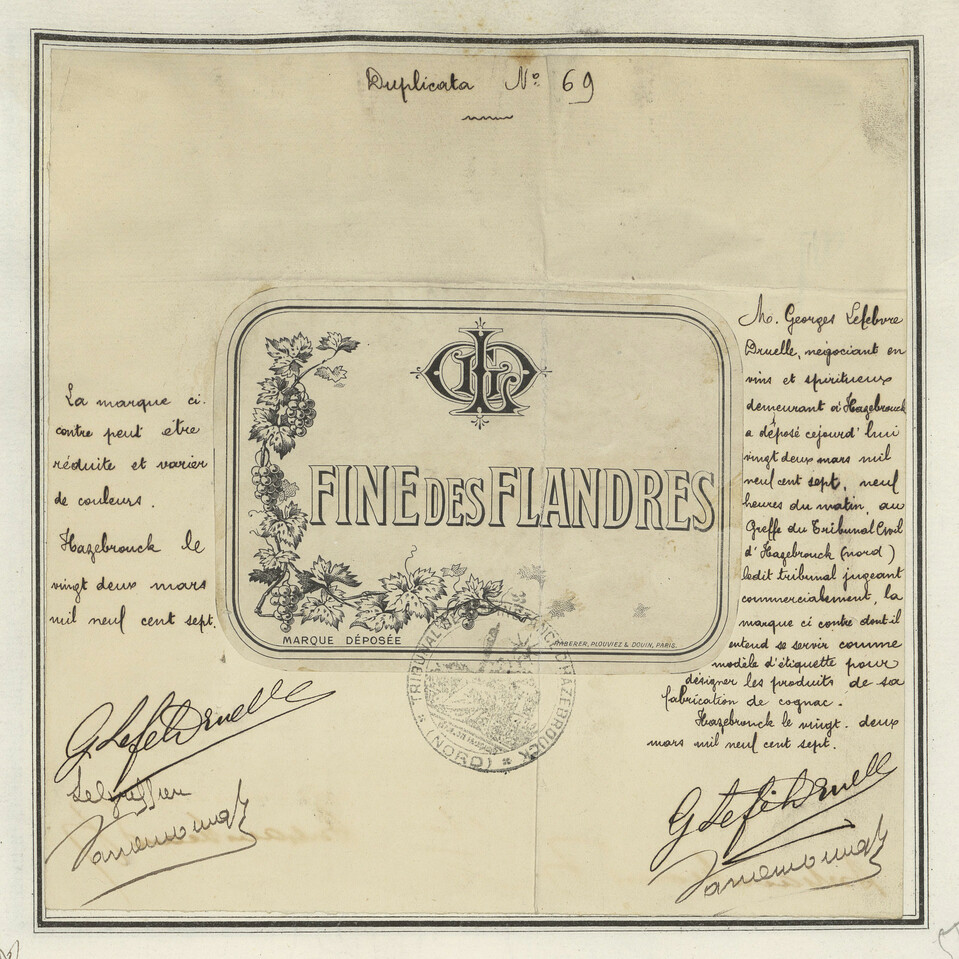 Duplicata Nº 69
La marque ci.
contre peut être
réduite et varier
de couleurs.
Hazebrouck le
vingt deux mars
mil neuf cent sept.
FINE DES FLANDRES
MARQUE DÉPOSÉE
HABERER, PLOUVIEZ & DOUIN, PARIS.
M. Georges Lefebvre
Druelle, négociant en
vins et spiritueux
demeurant à Hazebrouck
a déposé cejourd'hui
vingt deux mars mil
neuf cent sept, neuf
heures du matin, au
Greffe du Tribunal Civil
d'Hazebrouck (nord)
ledit tribunal jugeant
commercialement, la
marque ci contre dont il
entend se servir comme
modèle d'étiquette pour
désigner les produits de sa
fabrication de cognac.
Hazebrouck le vingt. deux
mars mil neuf cent sept.
TRIBUNAL D'HAZEBROUCK
(NORD)